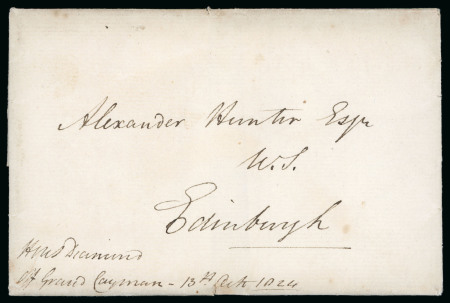 Alexander Hunter Esqr
W.S.
Edinburgh
HMS Diamond
off Grand Cayman - 13th Oct 1824